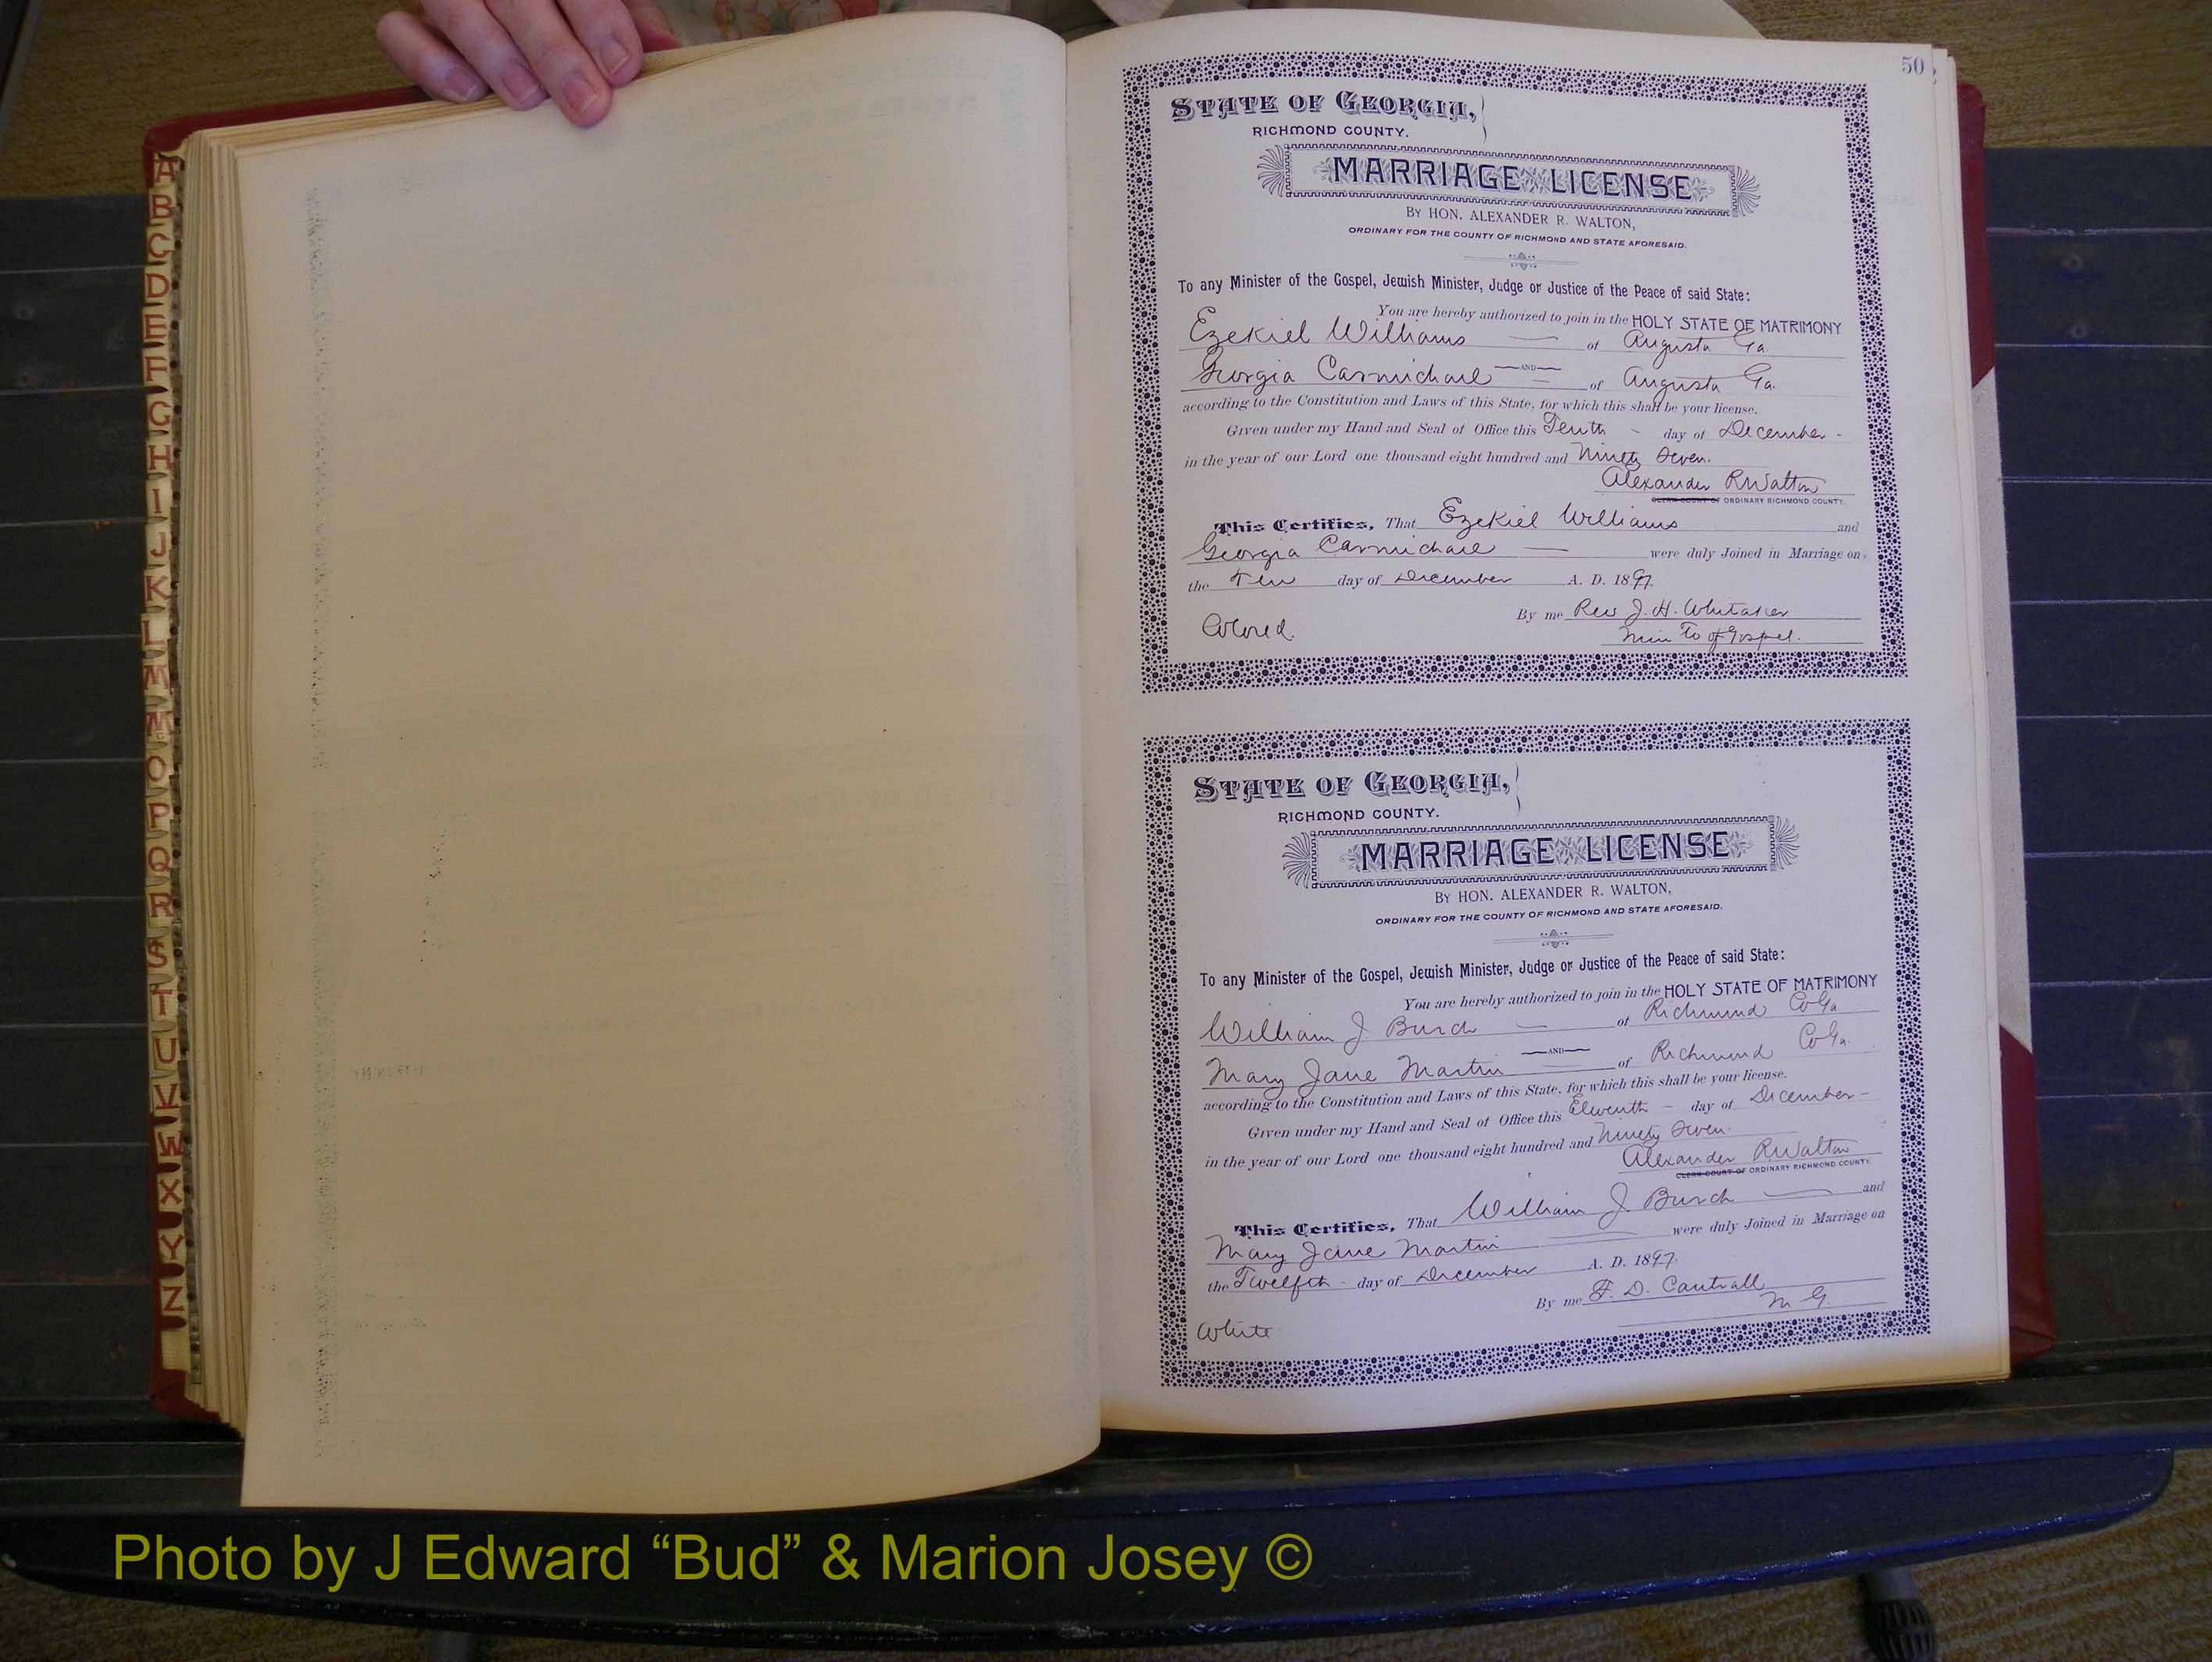 A
B
C
D
E
F
G
H
I
J
K
L
M
Mc
O
P
Q
R
S
T
U
V
W
X
Y
Z
50
STATE OF GEORGIA,
RICHMOND COUNTY.
MARRIAGE LICENSE
BY HON. ALEXANDER R. WALTON,
ORDINARY FOR THE COUNTY OF RICHMOND AND STATE AFORESAID.
To any Minister of the Gospel, Jewish Minister, Judge or Justice of the Peace of said State:
You are hereby authorized to join in the HOLY STATE OF MATRIMONY
Ezekiel Williams of Augusta Ga.
AND
Georgia Carmichael of Augusta Ga.
according to the Constitution and Laws of this State, for which this shall be your license.
Given under my Hand and Seal of Office this Tenth - day of December -
in the year of our Lord one thousand eight hundred and Ninety Seven.
Alexander R Walton
CLERK COURT OF ORDINARY RICHMOND COUNTY.
This Certifies, That Ezekiel Williams and
Georgia Carmichael were duly Joined in Marriage on
the Ten day of December A. D. 1897.
By me Rev J. H. Whitaker
Colored. Min To of Gospel.
STATE OF GEORGIA,
RICHMOND COUNTY.
MARRIAGE LICENSE
BY HON. ALEXANDER R. WALTON,
ORDINARY FOR THE COUNTY OF RICHMOND AND STATE AFORESAID.
To any Minister of the Gospel, Jewish Minister, Judge or Justice of the Peace of said State:
You are hereby authorized to join in the HOLY STATE OF MATRIMONY
William J Burch of Richmond Co Ga
AND
Mary Jane Martin of Richmond Co Ga.
according to the Constitution and Laws of this State, for which this shall be your license.
Given under my Hand and Seal of Office this Eleventh - day of December -
in the year of our Lord one thousand eight hundred and Ninety Seven.
Alexander R Walton
CLERK COURT OF ORDINARY RICHMOND COUNTY.
This Certifies, That William J Burch and
Mary Jane Martin were duly Joined in Marriage on
the Twelfth - day of December A. D. 1897.
By me F. D. Cantrall
M. G.
White
Photo by J Edward “Bud” & Marion Josey ©